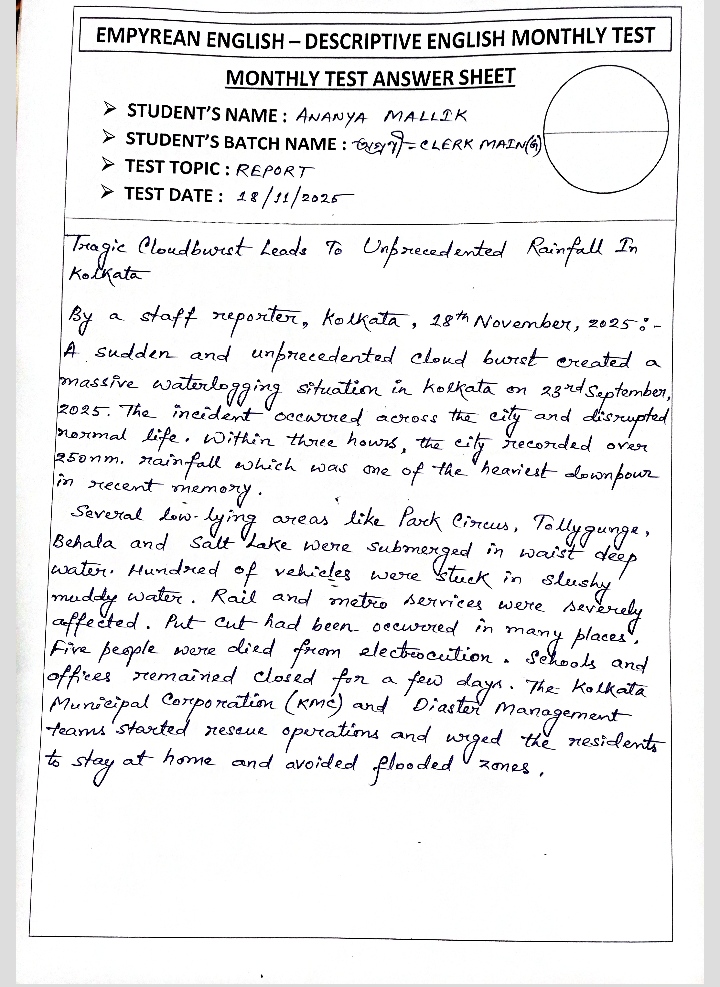 EMPYREAN ENGLISH – DESCRIPTIVE ENGLISH MONTHLY TEST
MONTHLY TEST ANSWER SHEET
➤ STUDENT'S NAME : ANANYA MALLIK
➤ STUDENT'S BATCH NAME : = CLERK MAIN(G)
➤ TEST TOPIC : REPORT
➤ TEST DATE : 18/11/2025
Tragic Cloudburst Leads To Unprecedented Rainfall In
Kolkata
By a staff reporter, Kolkata, 18th November, 2025 :-
A sudden and unprecedented cloud burst created a
massive waterlogging situation in Kolkata on 23rd September,
2025. The incident occurred across the city and disrupted
normal life. Within three hours, the city recorded over
250mm. rainfall which was one of the heaviest downpour
in recent memory.
Several low-lying areas like Park Circus, Tollygunge,
Behala and Salt Lake were submerged in waist deep
water. Hundred of vehicles were stuck in slushy
muddy water. Rail and metro services were severely
affected. Put cut had been occurred in many places.
Five people were died from electrocution. Schools and
offices remained closed for a few days. The Kolkata
Municipal Corporation (KMC) and Diaster Management
teams started rescue operations and urged the residents
to stay at home and avoided flooded zones.